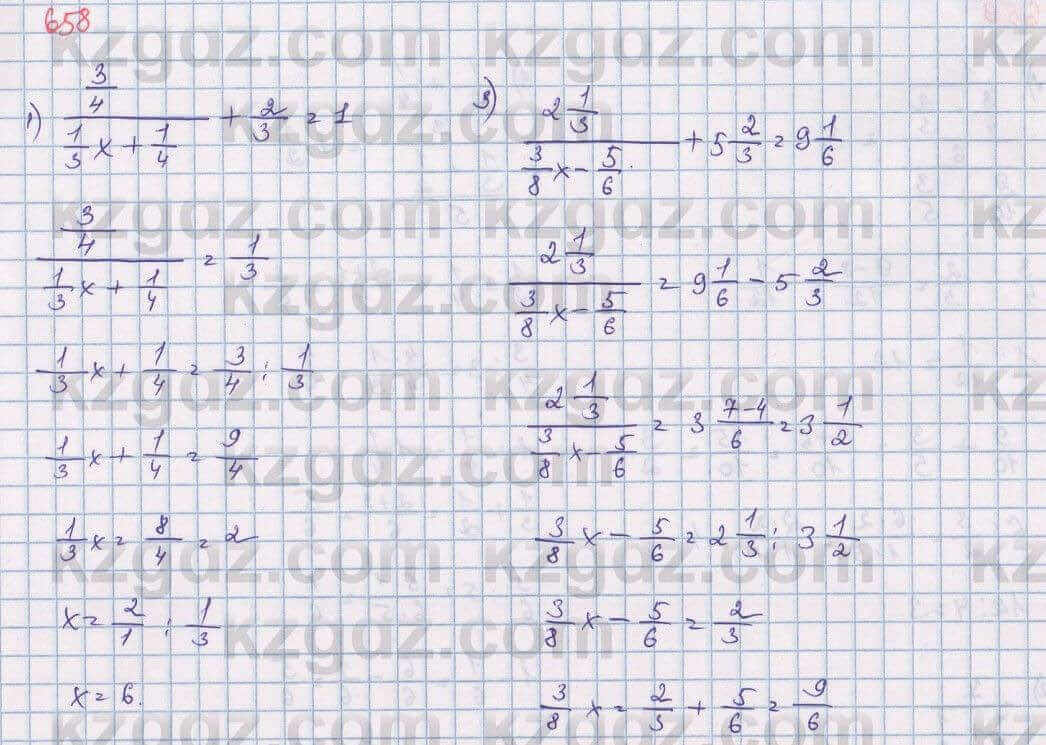 658
1) (3/4)/(1/3 x + 1/4) + 2/3 = 1
(3/4)/(1/3 x + 1/4) = 1/3
1/3 x + 1/4 = 3/4 : 1/3
1/3 x + 1/4 = 9/4
1/3 x = 8/4 = 2
x = 2/1 : 1/3
x = 6.
3) (2 1/3)/(3/8 x - 5/6) + 5 2/3 = 9 1/6
(2 1/3)/(3/8 x - 5/6) = 9 1/6 - 5 2/3
(2 1/3)/(3/8 x - 5/6) = 3 (7-4)/6 = 3 1/2
3/8 x - 5/6 = 2 1/3 : 3 1/2
3/8 x - 5/6 = 2/3
3/8 x = 2/3 + 5/6 = 9/6
kzgdz.com